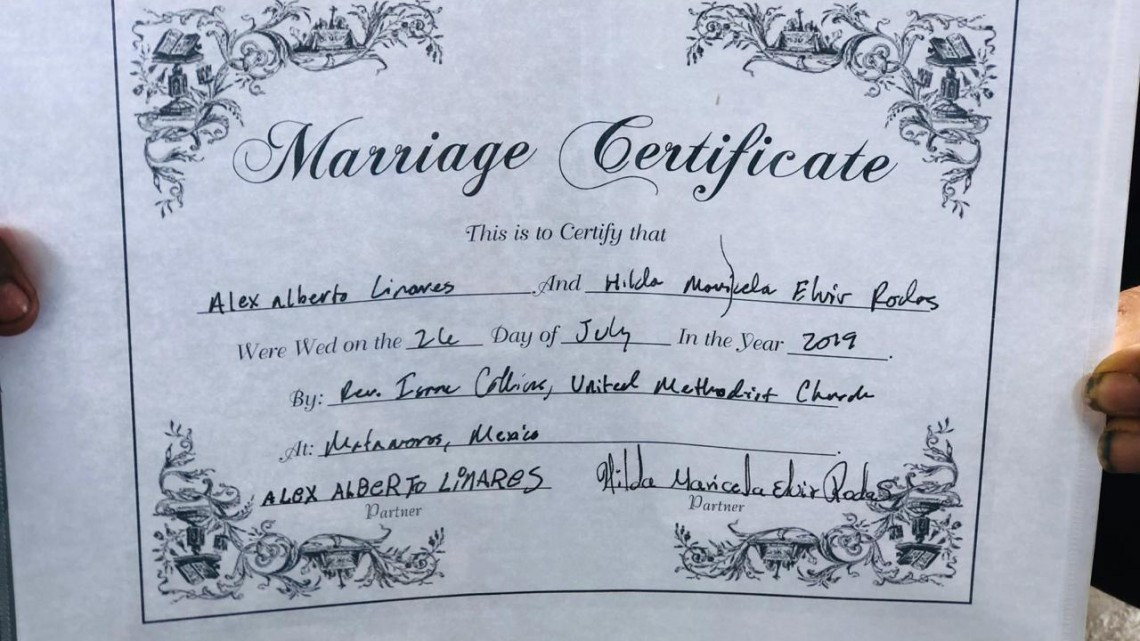 Marriage Certificate
This is to Certify that
Alex Alberto Linares And Hilda Maricela Elvir Rodas
Were Wed on the 26 Day of July In the Year 2019.
By: Rev. Collins, United Methodist Church
At: Matamoros, Mexico.
ALEX ALBERTO LINARES Hilda Maricela Elvir Rodas
Partner Partner